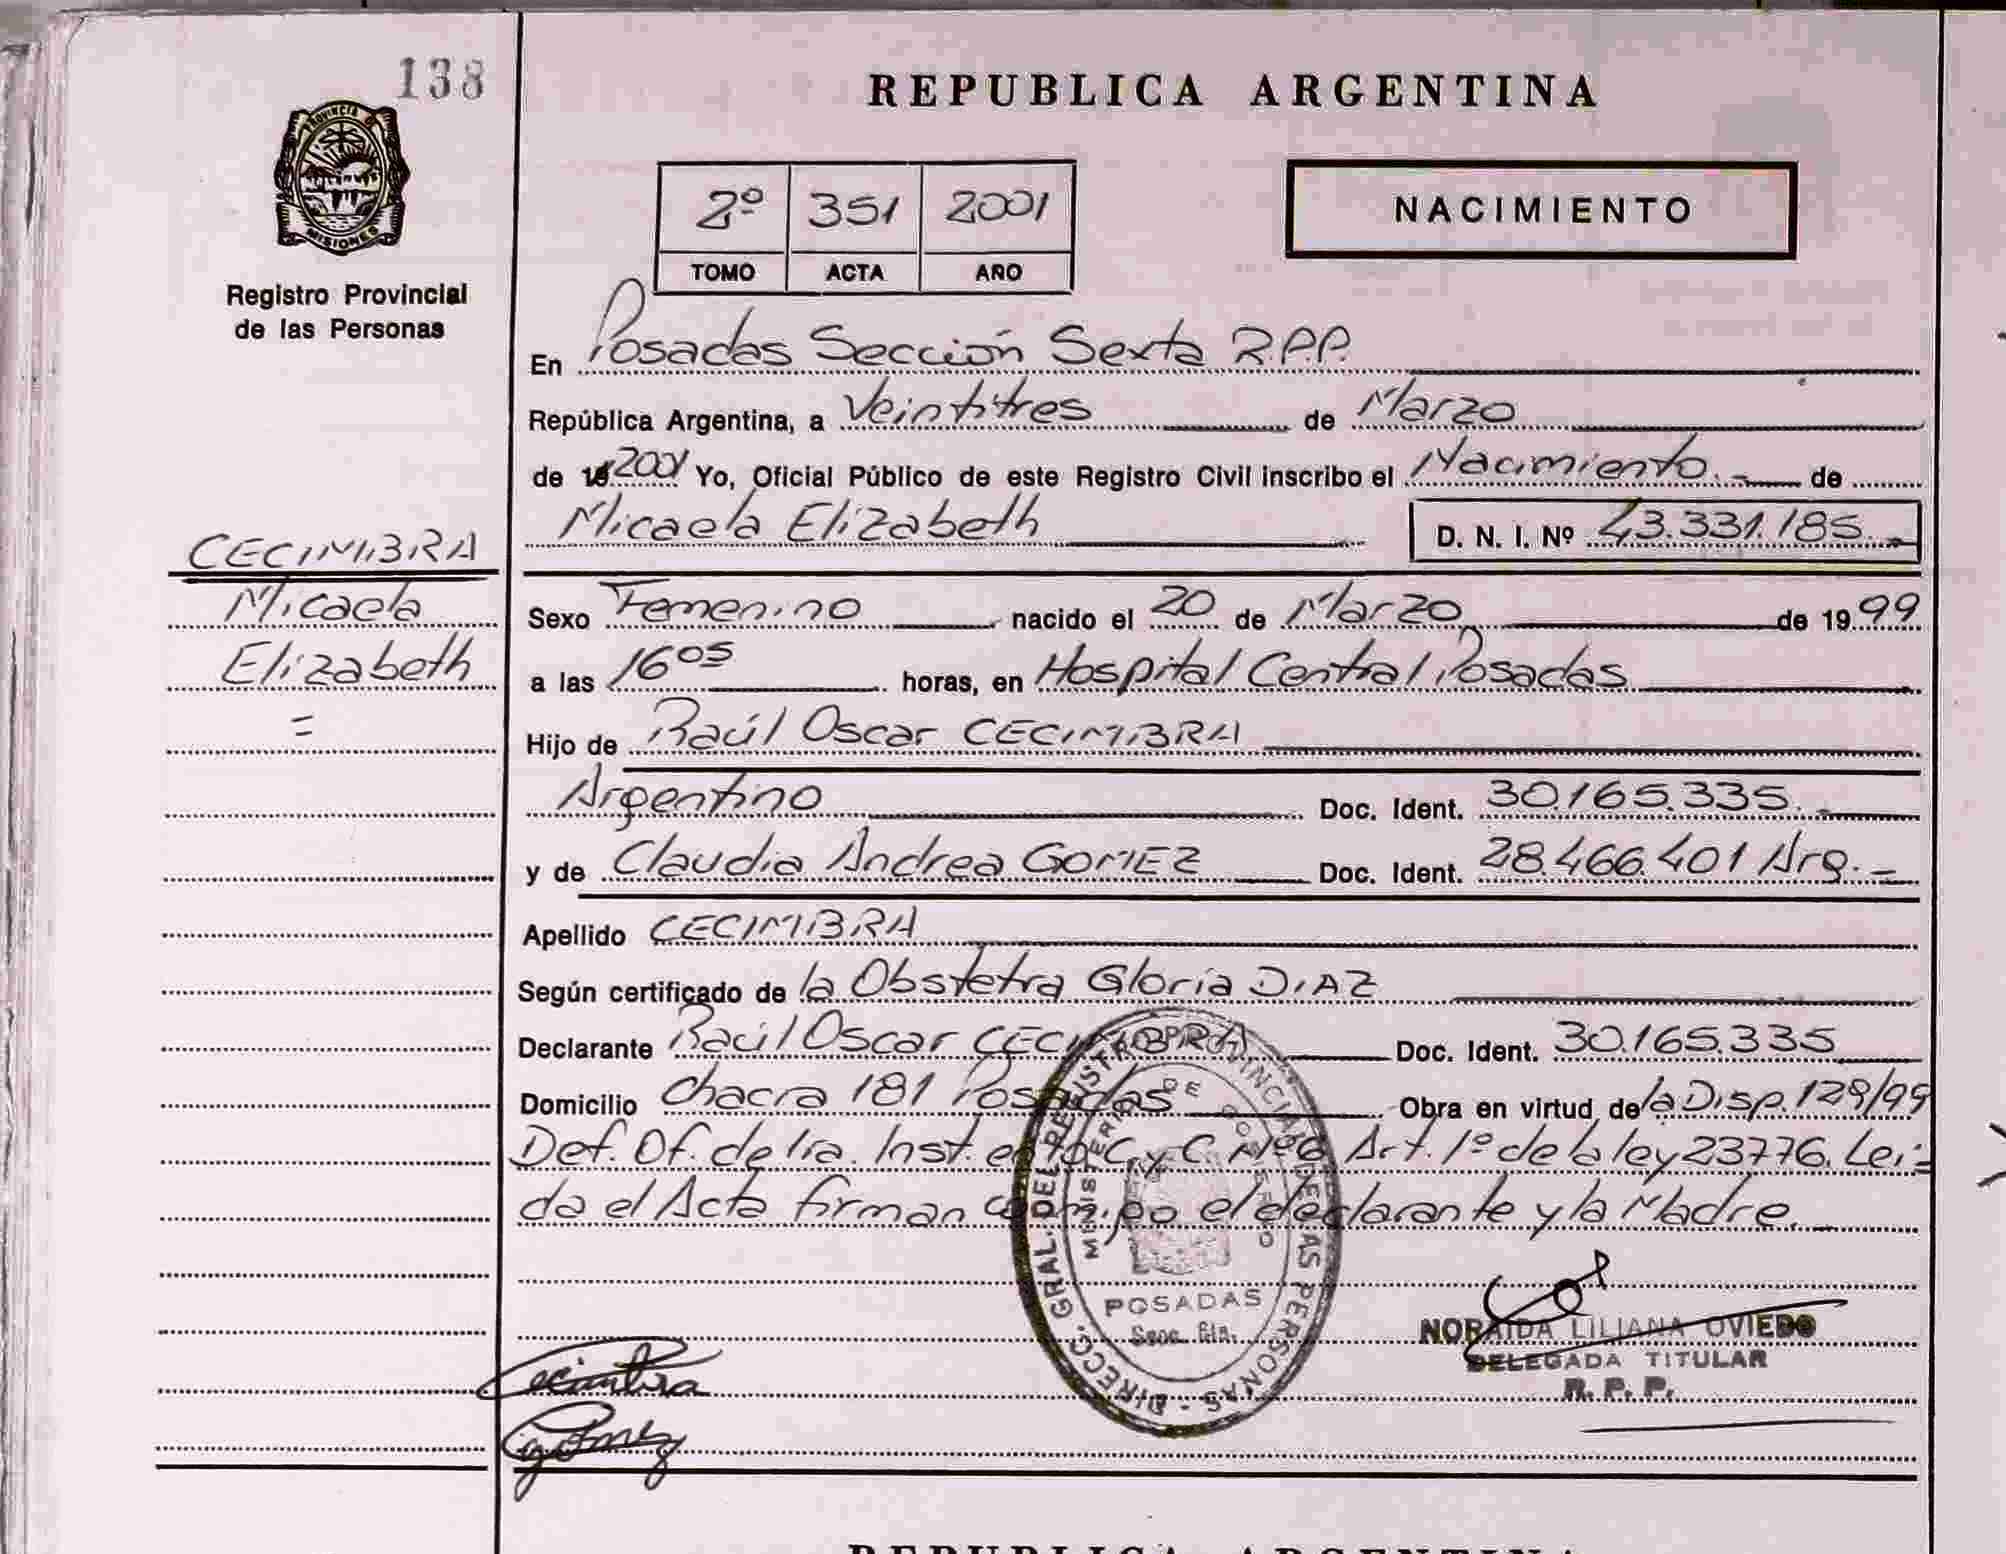 138
PROVINCIA D
MISIONES
Registro Provincial
de las Personas
CECIMBRA
Micaela
Elizabeth
=
REPUBLICA ARGENTINA
2º 351 2001
TOMO ACTA AÑO
NACIMIENTO
En Posadas Sección Sexta R.P.P.
República Argentina, a Veintitres de Marzo
de 19 2001 Yo, Oficial Público de este Registro Civil inscribo el Nacimiento.- de
Micaela Elizabeth D. N. I. Nº 43.331.185.-
Sexo Femenino nacido el 20 de Marzo de 1999
a las 16 05 horas, en Hospital Central, Posadas
Hijo de Raúl Oscar CECIMBRA
Argentino Doc. Ident. 30.165.335.-
y de Claudia Andrea GOMEZ Doc. Ident. 28.466.401 Arg.-
Apellido CECIMBRA
Según certificado de la Obstetra Gloria DIAZ
Declarante Raúl Oscar CECIMBRA Doc. Ident. 30.165.335
Domicilio Chacra 181 Posadas Obra en virtud de la Disp. 129/99
Def. Of. de 1ra. Inst. en lo C. y C. Nº 6 Art. 1º de la ley 23776. Lei=
da el Acta firman conmigo el declarante y la Madre.-
DIRECC. GRAL. DEL REGISTRO PROVINCIAL DE LAS PERSONAS -
MINISTERIO DE GOBIERNO
POSADAS
Secc. 6ta.
NORAIDA LILIANA OVIEDO
DELEGADA TITULAR
R. P. P.
Cecimbra
Gomez
REPUBLICA ARGENTINA